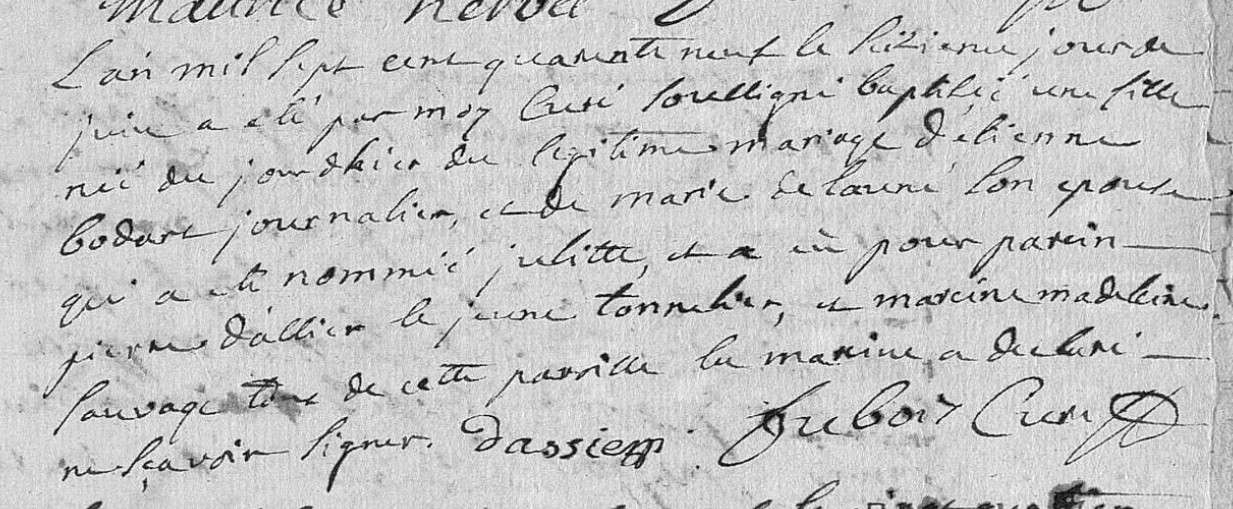 maurice herbu
L'an mil sept cent quarente neuf le seizieme jour de
juin a eté par moy Curé soussigné baptiséé une fille
néé du jourdhier du legitime mariage d'etienne
bodart journalier, et de marie delauné son epouse
qui a eté nommeé julitte, et a eü pour parein
pierre dallier le jeune tonnelier, et mareine madeleine
sauvage tous de cette parroisse la mareine a declaré
ne sçavoir signer. Dassier Dubois Curé